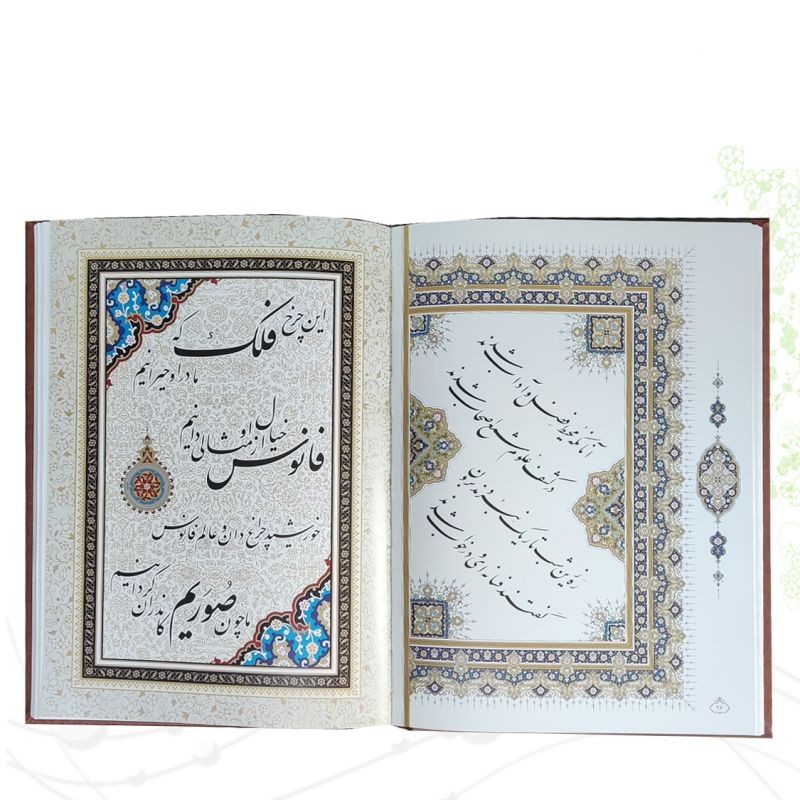 آنانکه محیط فضل و آداب شدند
در کشف علوم شمع اصحاب شدند
ره زین شب تاریک نبردند برون
گفتند فسانه ای و در خواب شدند
این چرخ فلک که
ما در او حیرانیم
فانوس خیال از او مثالی دانیم
خورشید چراغ دان و عالم فانوس
ما چون صُوریم کاندران گردانیم